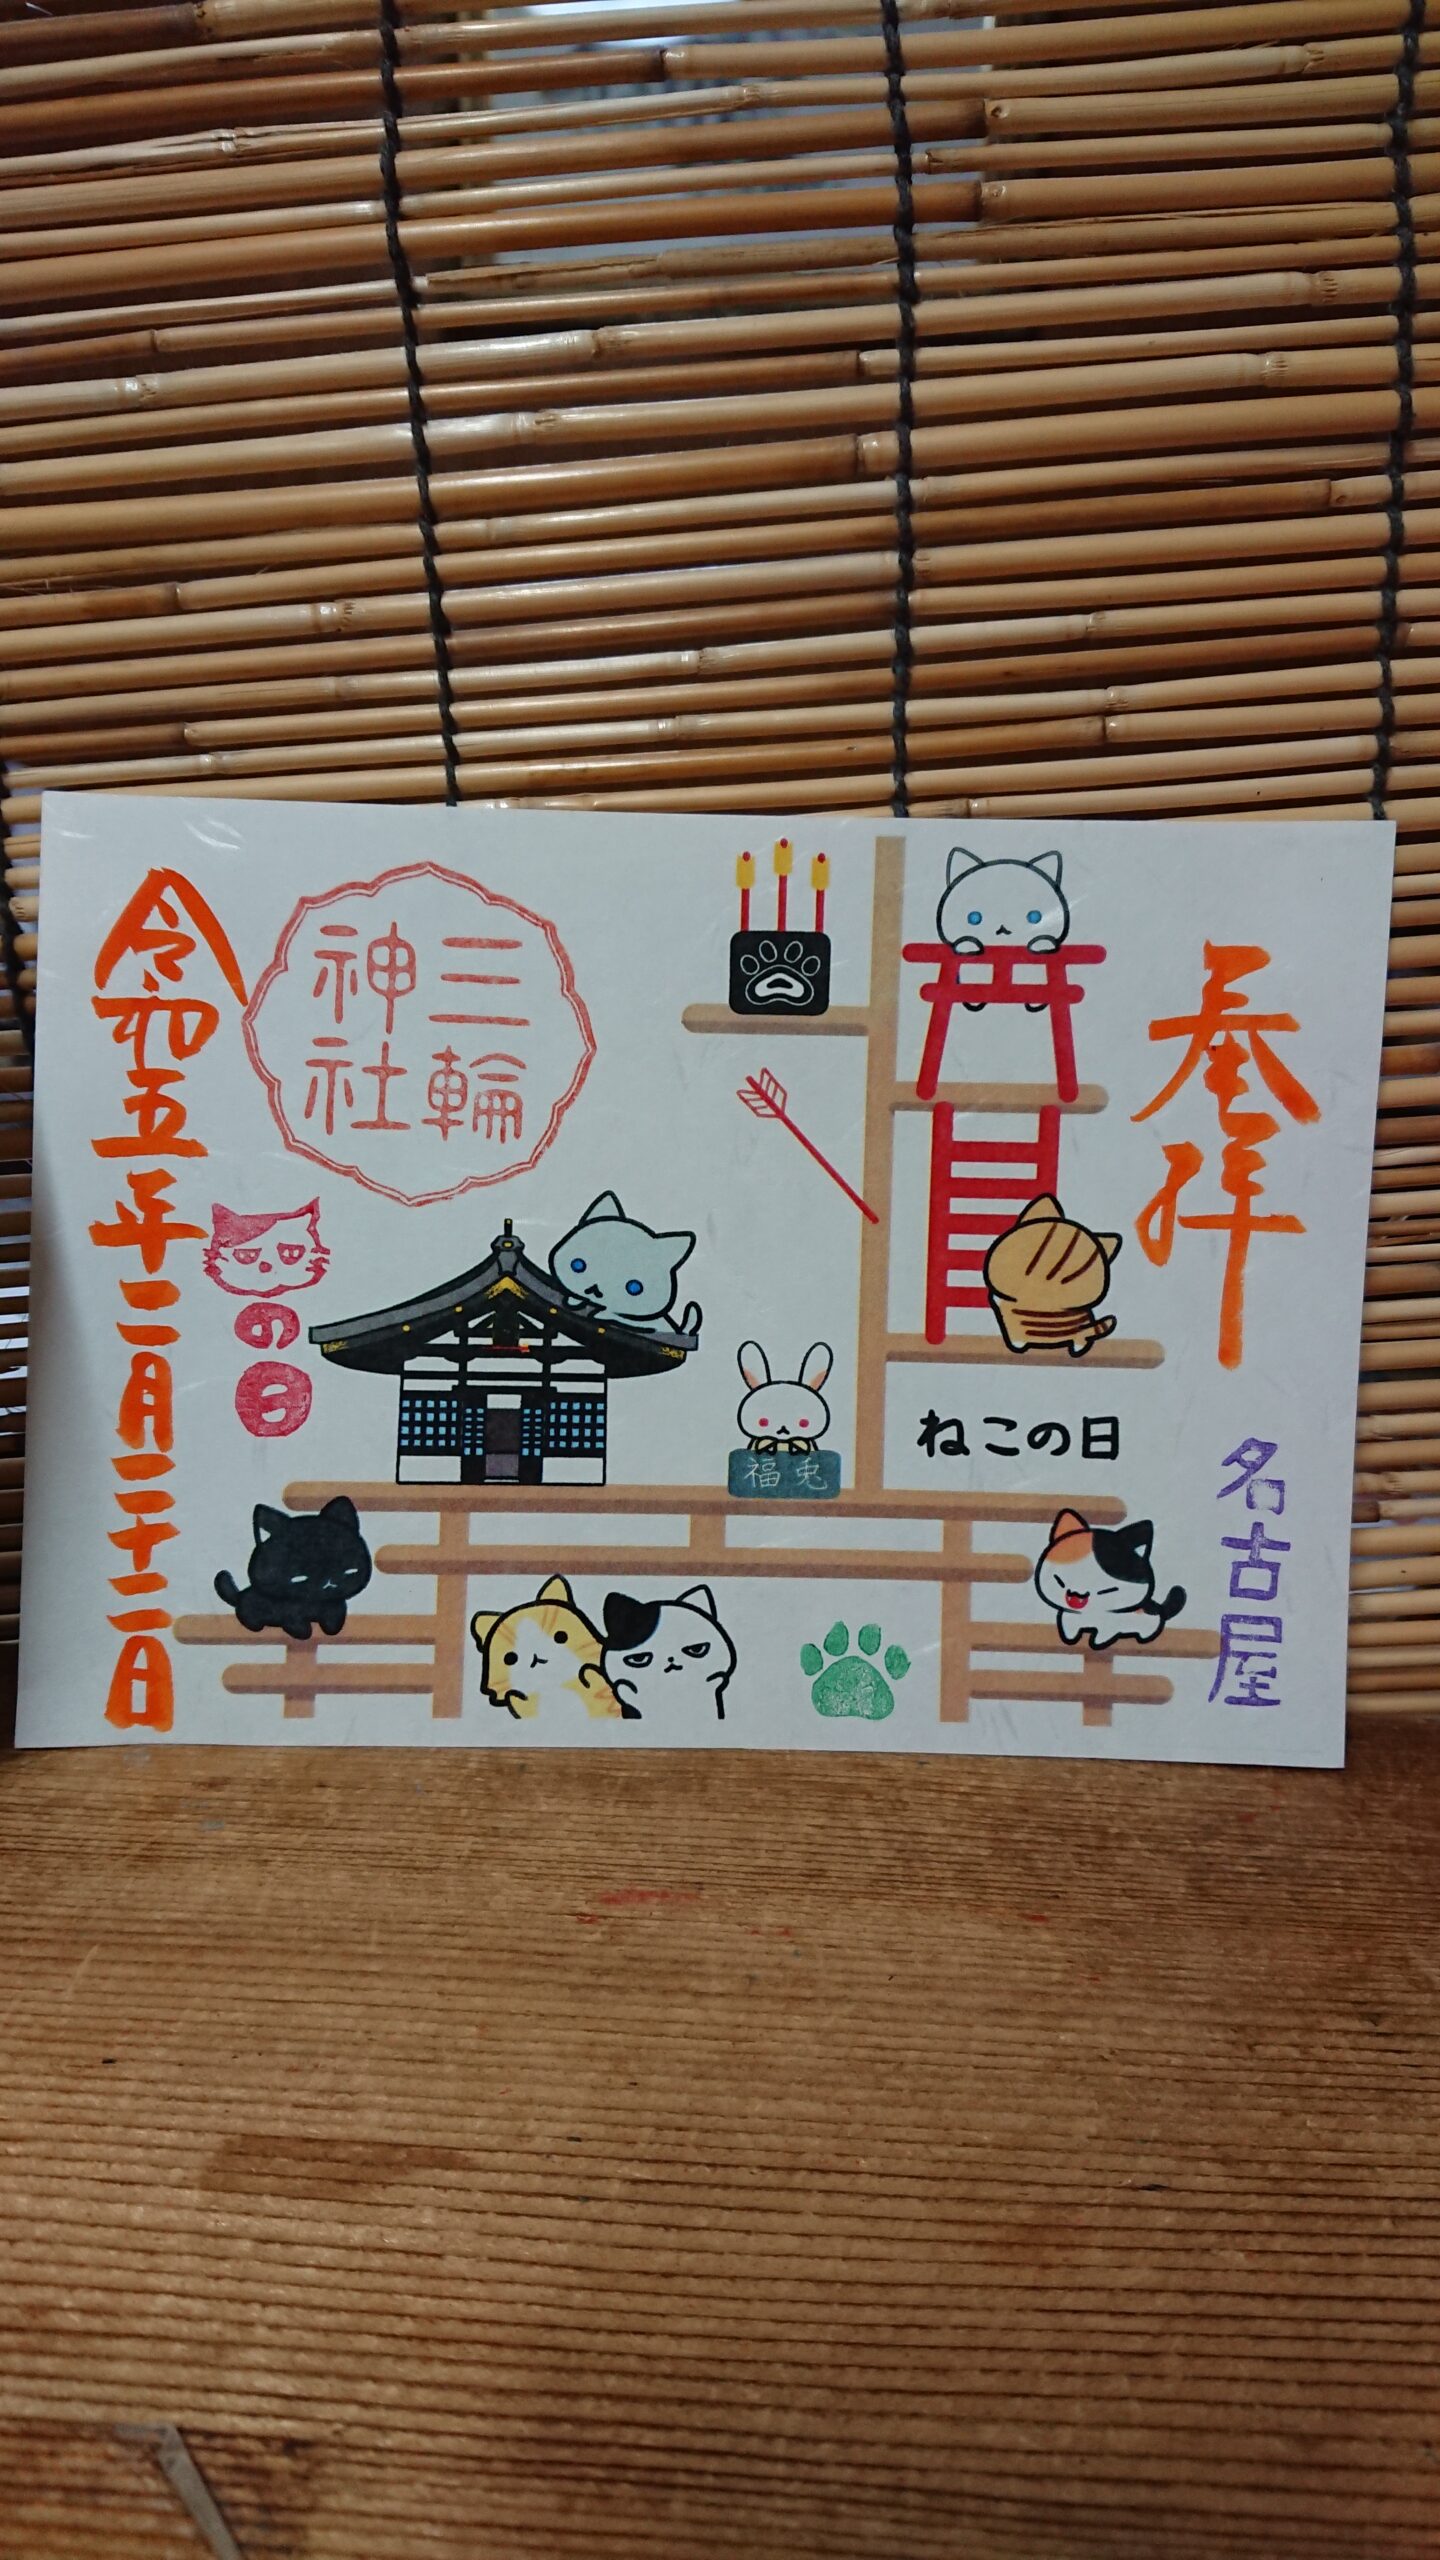 奉拝
名古屋
ねこの日
福兎
三輪
神社
の日
令和五年二月二十二日